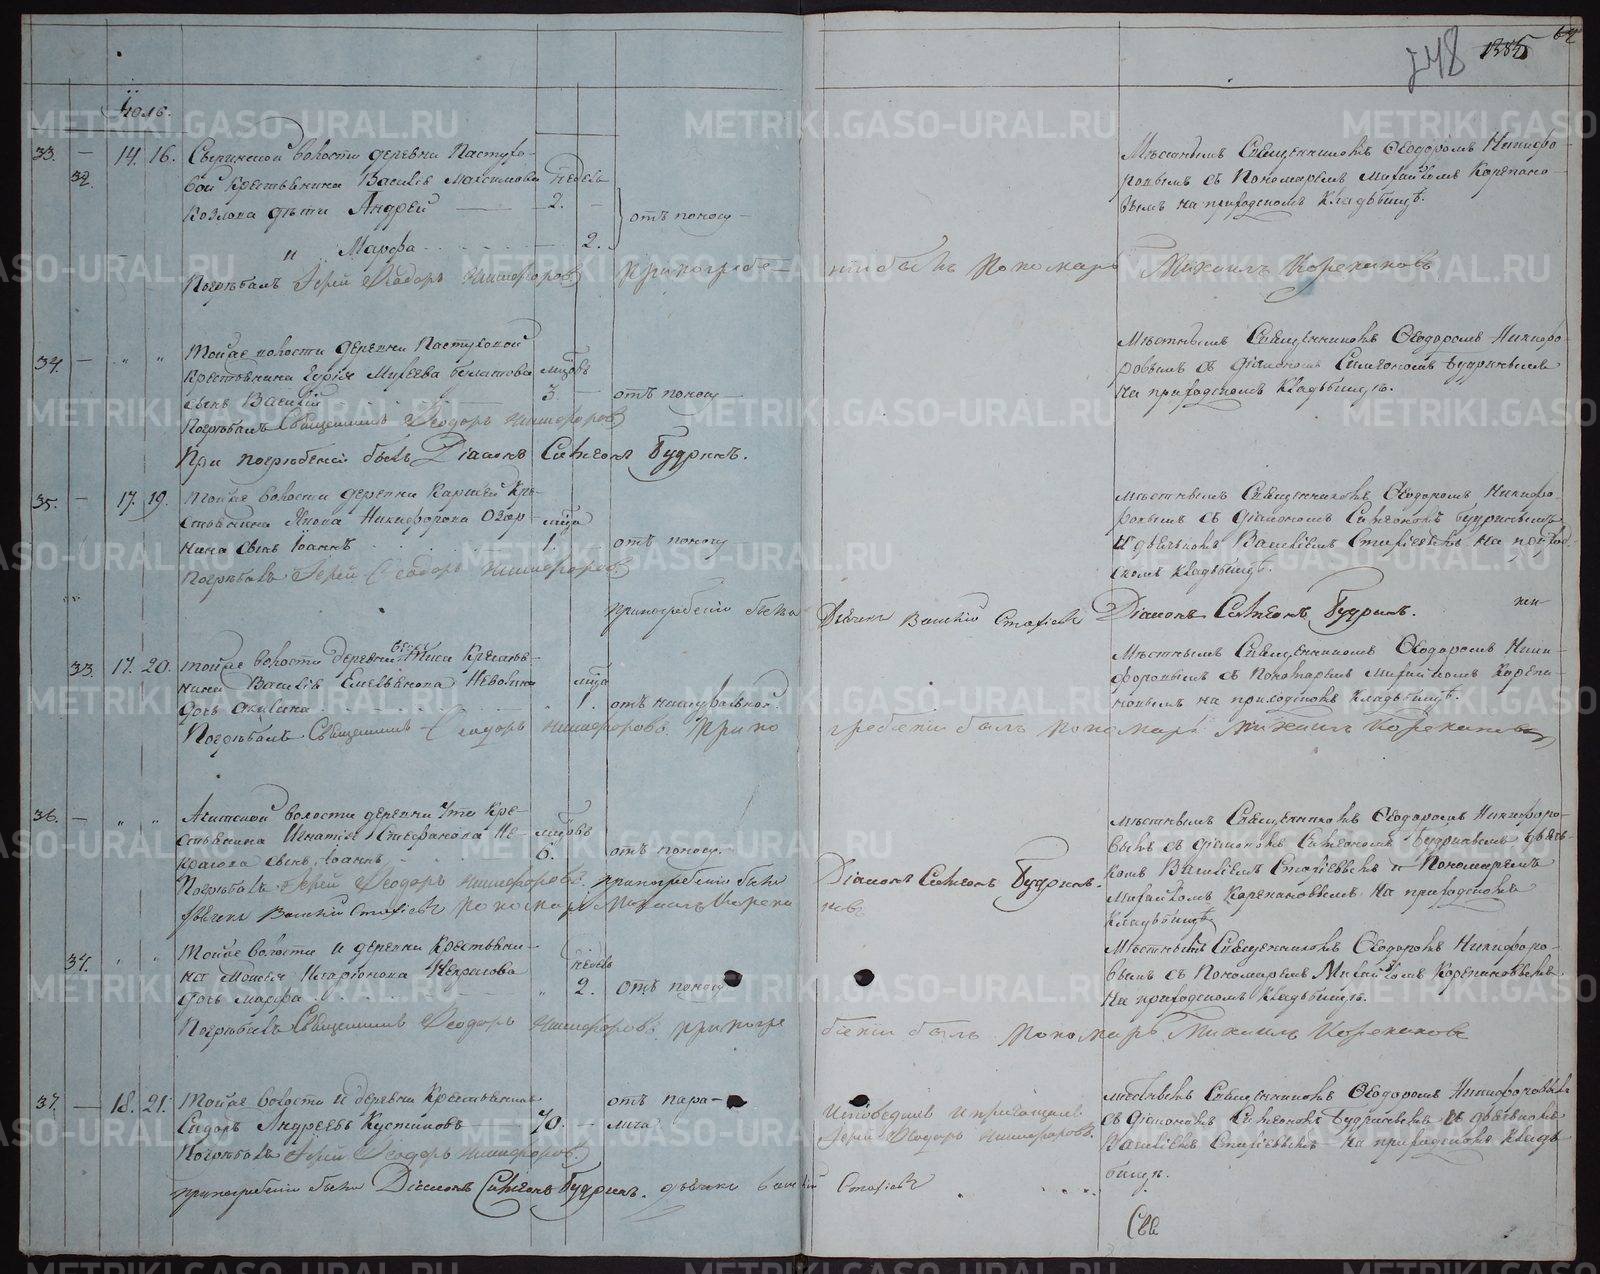 248 1385 64
Іюль.
33. — 14. 16. Сыринской волости деревни Пастухо-
32. вой крестьянина Василія Максимова недель
Козлова дѣти Андрей — 2. —
отъ поносу —
„ Марѳа — 2.
Погребалъ Іерей Ѳеодоръ Никифоровъ При погребе-
Мѣстнымъ Священникомъ Ѳеодоромъ Никифо-
ровымъ съ Пономаремъ Михаиломъ Корепано-
вымъ на приходскомъ кладбищѣ.
ніи былъ Пономарь Михаилъ Корепановъ
34. — „ „ Той же волости деревни Пастуховой
крестьянина Михеева Булатова мѣсяцовъ
сынъ Василій 3. — отъ поносу —
Погребалъ Священникъ Ѳеодоръ Никифоровъ
При погребеніи былъ Діаконъ Симеонъ Будринъ.
Мѣстнымъ Священникомъ Ѳеодоромъ Никифо-
ровымъ съ Діакономъ Симеономъ Будринымъ
на приходскомъ кладбищѣ.
35. — 17. 19. Той же волости деревни Каршей кре-
стьянина Якова Никифорова Озор-
нина сынъ Іоаннъ 1. отъ поносу
Погребалъ Іерей Ѳеодоръ Никифоровъ
При погребеніи были Дьячекъ Василій Стахіевъ Діаконъ Симеонъ Будринъ.
Мѣстнымъ Священникомъ Ѳеодоромъ Никифо-
ровымъ съ Діакономъ Симеономъ Будринымъ
и дьячкомъ Василіемъ Стахіевымъ на приход-
скомъ кладбищѣ.
33. 17. 20. Той же волости деревни крестья-
нина Василія Емельянова Неволина
дочь Акилина 1. отъ натуральной.
Погребалъ Священникъ Ѳеодоръ Никифоровъ. При по
гребеніи былъ Пономарь Михаилъ Корепановъ
Мѣстнымъ Священникомъ Ѳеодоромъ Ники-
форовымъ съ Пономаремъ Михаиломъ Корепа-
новымъ на приходскомъ кладбищѣ.
36. — „ „ Ачитской волости деревни Утя кре-
стьянина Игнатія Стефанова Не-
красова сынъ Іоаннъ 6. отъ поносу.
Погребалъ Іерей Ѳеодоръ Никифоровъ. При погребеніи были
Діаконъ Симеонъ Будринъ.
дьячекъ Василій Стахіевъ Пономарь Михаилъ Корепа
новъ
Мѣстнымъ Священникомъ Ѳеодоромъ Никифоро-
вымъ съ Діакономъ Симеономъ Будринымъ дьяч-
комъ Василіемъ Стахіевымъ и Пономаремъ
Михаиломъ Корепановымъ на приходскомъ
кладбищѣ
34. „ „ Той же волости и деревни крестьяни-
на Моисея Иларіонова Некрасова недель
дочь Марѳа „ 2. отъ поносу
Погребалъ Священникъ Ѳеодоръ Никифоровъ. При погре
беніи былъ Пономарь Михаилъ Корепановъ
Мѣстнымъ Священникомъ Ѳеодоромъ Никифоро-
вымъ съ Пономаремъ Михаиломъ Корепановымъ
на приходскомъ кладбищѣ.
37. — 18. 21. Той же волости и деревни крестьянинъ
Сидоръ Андреевъ Кустиковъ 70. — отъ пара-
лича
Погребалъ Іерей Ѳеодоръ Никифоровъ.
Исповедалъ и пріобщалъ
Іерей Ѳеодоръ Никифоровъ.
При погребеніи были Діаконъ Симеонъ Будринъ. дьячекъ Василій Стахіевъ
Мѣстнымъ Священникомъ Ѳеодоромъ Никифоровымъ
съ Діакономъ Симеономъ Будринымъ съ дьячкомъ
Василіемъ Стахіевымъ на приходскомъ клад-
бищѣ.
Свя
METRIKI.GASO-URAL.RU